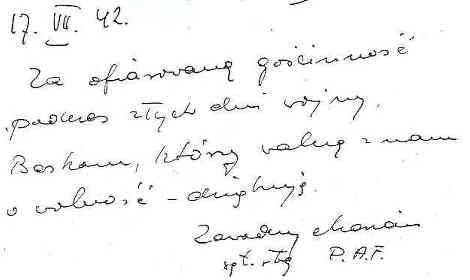 17. VII. 42.
Za ofiarowaną gościnność
podczas złych dni wojny.
Baskom, którzy walczą z nami
o wolność – dziękuję.
Zawadny Marian
sgt. strz. P.A.F.